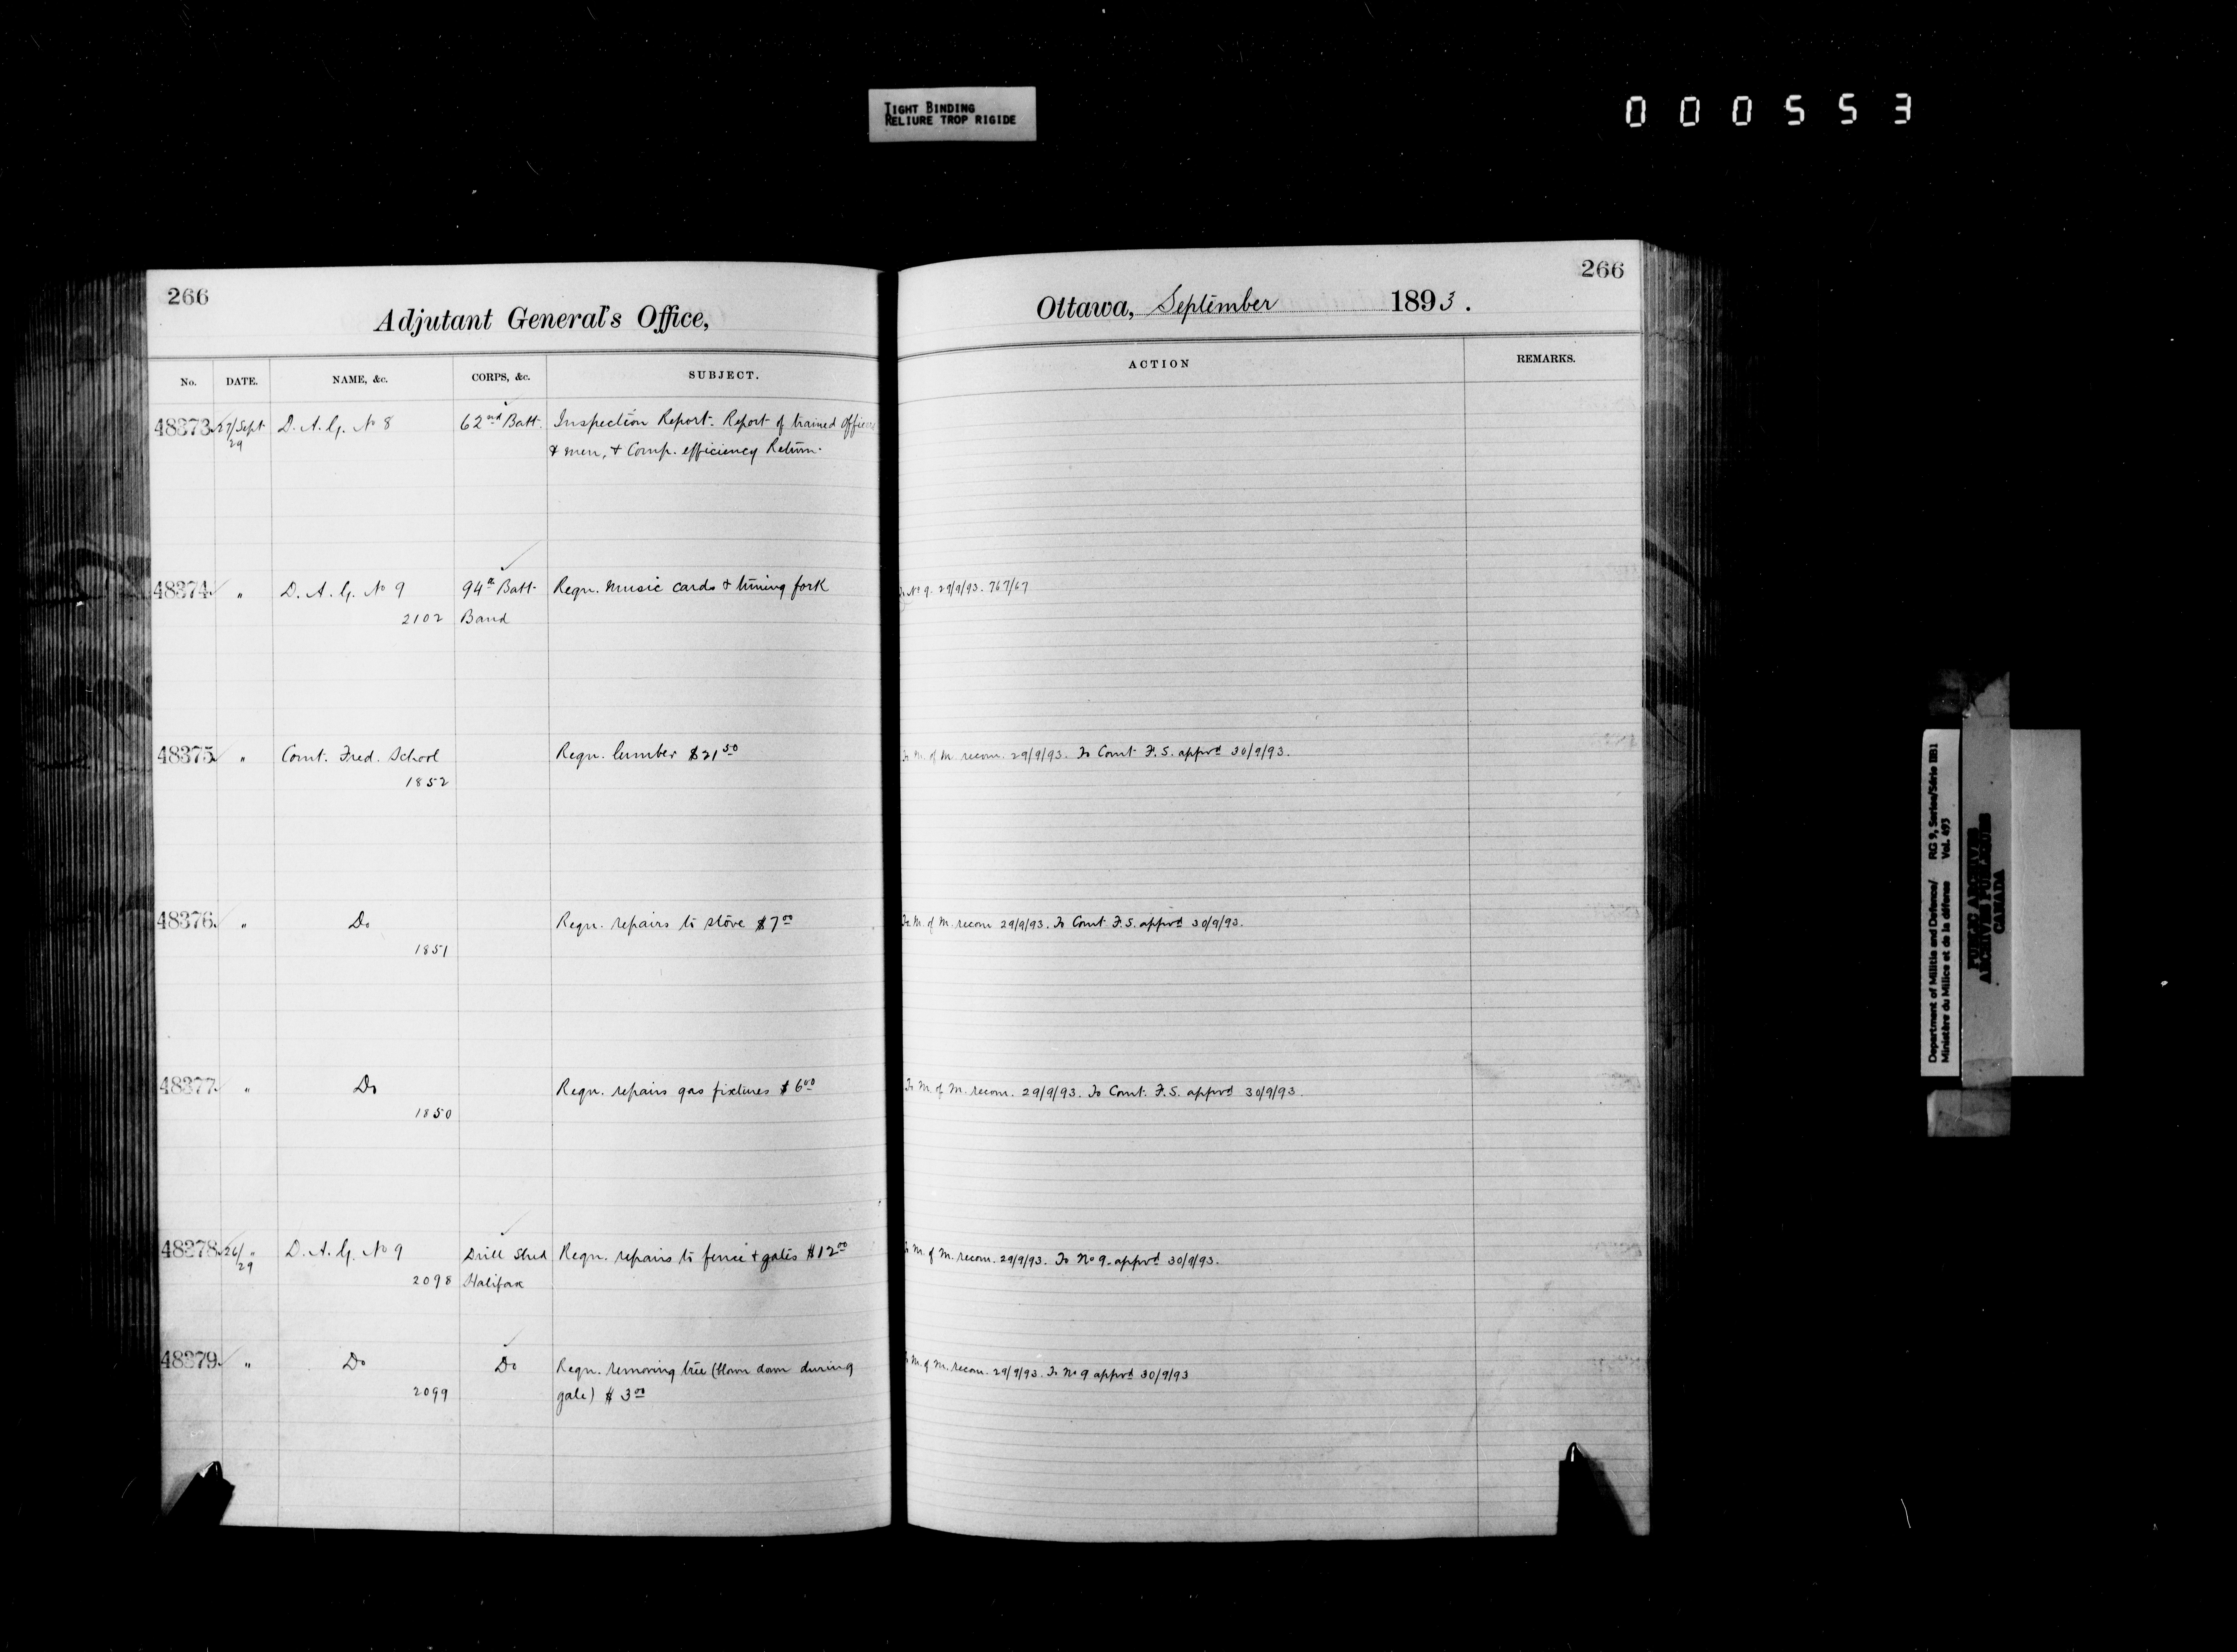 TIGHT BINDING
RELIURE TROP RIGIDE
000553
266
Adjutant General's Office,
No. DATE. NAME, &c. CORPS, &c. SUBJECT.
48373 27/Sept D. A. G. No 8 62nd Batt. Inspection Report. Report of trained Officers
29 & men, & Comp. efficiency Return.
48374 " D. A. G. No 9 94th Batt. Reqn. music cards & tuning fork
2102 Band
48375 " Comt. Fred. School Reqn. lumber $21.50
1852
48376 " Do Reqn. repairs to stove $7.00
1851
48377 " Do Reqn. repairs gas fixtures $6.00
1850
48378 26/ " D. A. G. No 9 Drill Shed Reqn. repairs to fence & gates $12.00
29 2098 Halifax
48379 " Do Do Reqn. removing tree (blown down during
2099 gale) $3.00
266
Ottawa, September 1893.
ACTION REMARKS.
To No 9. 29/9/93. 767/67
To M. of M. recom. 29/9/93. To Comt. F. S. apprvd 30/9/93.
To M. of M. recom 29/9/93. To Comt F. S. apprvd 30/9/93.
To M. of M. recom. 29/9/93. To Comt. F. S. apprvd 30/9/93.
To M. of M. recom. 29/9/93. To No 9. apprvd 30/9/93.
To M. of M. recom. 29/9/93. To No 9 apprvd 30/9/93
Department of Militia and Defence/ RG 9, Series/Série IIB1
Ministère du Milice et de la défense Vol. 493
PUBLIC ARCHIVES
ARCHIVES PUBLIQUES
CANADA